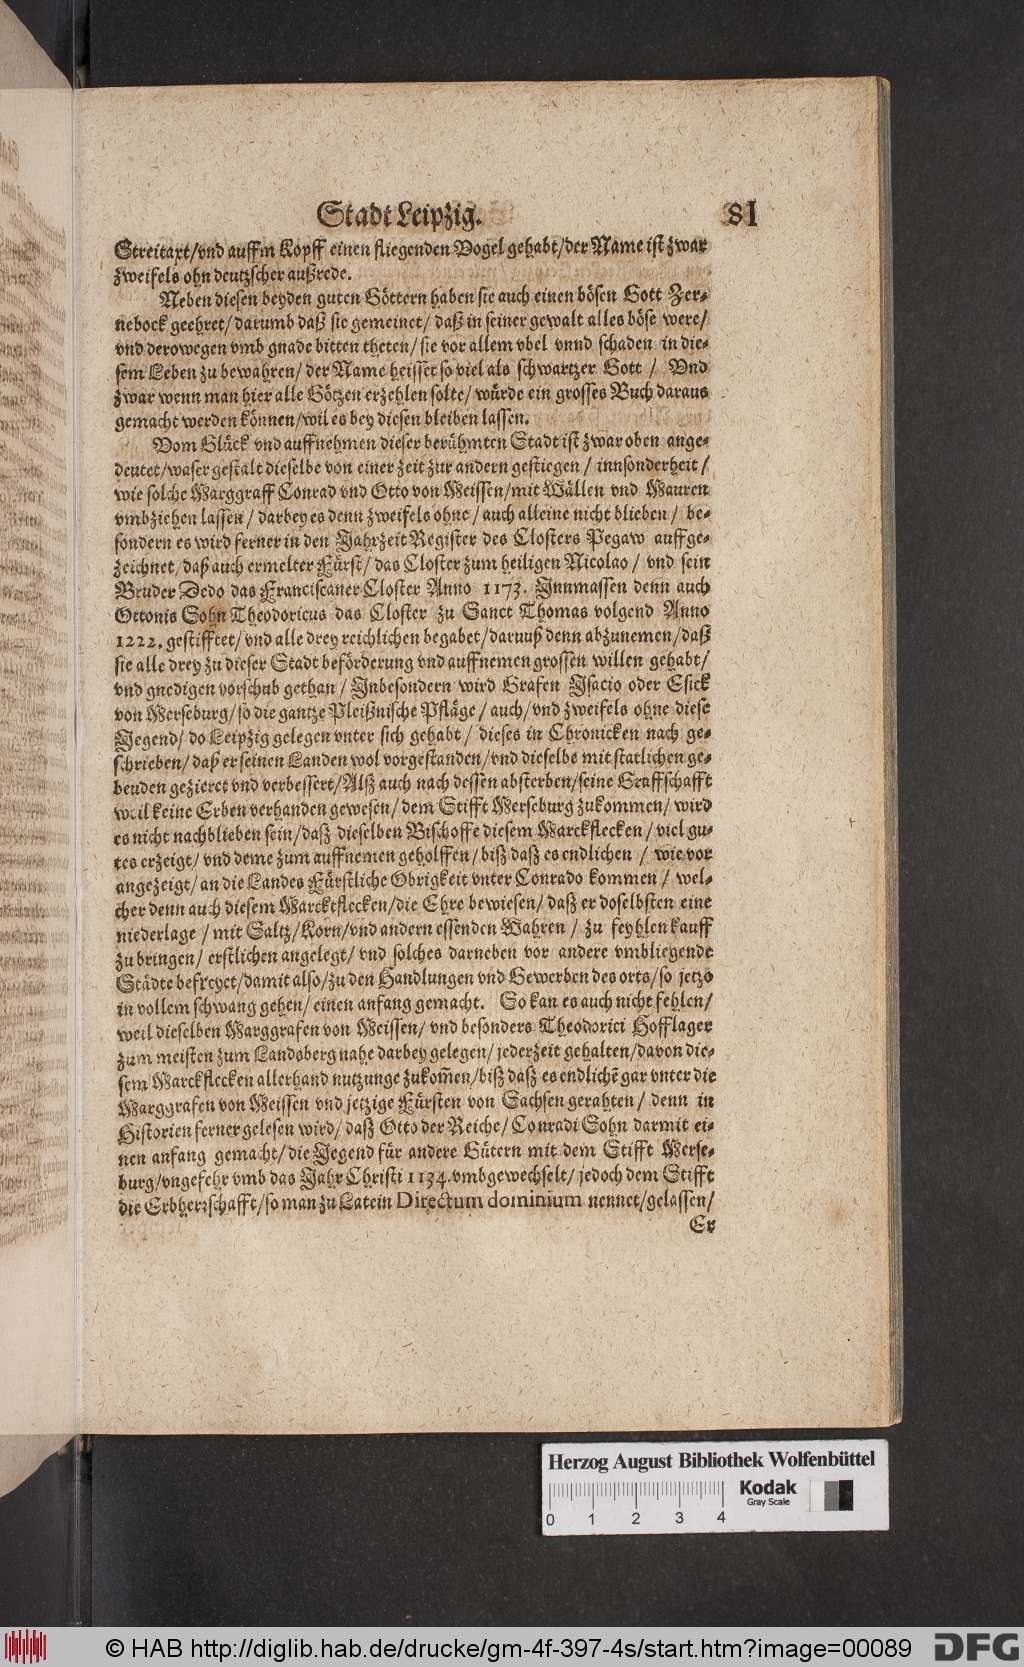 Stadt Leipzig. 81
Streitaxt/vnd auffm Kopff einen fliegenden Vogel gehabt/der Name ist zwar
zweifels ohn deutzscher außrede.
Neben diesen beyden guten Göttern haben sie auch einen bösen Gott Zer-
nebock geehret/darumb daß sie gemeinet/daß in seiner gewalt alles böse were/
vnd derowegen vmb gnade bitten theten/sie vor allem vbel vnnd schaden in die-
sem Leben zu bewahren/der Name heisset so viel als schwartzer Gott / Vnd
zwar wenn man hier alle Götzen erzehlen solte/würde ein grosses Buch daraus
gemacht werden können/wil es bey diesen bleiben lassen.
Vom Glück vnd auffnehmen dieser berühmten Stadt ist zwar oben ange-
deutet/waser gestalt dieselbe von einer zeit zur andern gestiegen/innsonderheit/
wie solche Marggraff Conrad vnd Otto von Meissen/mit Wällen vnd Mauren
vmbziehen lassen/darbey es denn zweifels ohne/auch alleine nicht blieben/be-
sondern es wird ferner in den Jahrzeit Register des Closters Pegaw auffge-
zeichnet/daß auch ermelter Fürst/das Closter zum heiligen Nicolao/vnd sein
Bruder Dedo das Franciscaner Closter Anno 1173. Innmassen denn auch
Ottonis Sohn Theodoricus das Closter zu Sanct Thomas volgend Anno
1222. gestifftet/vnd alle drey reichlichen begabet/daruuß denn abzunemen/daß
sie alle drey zu dieser Stadt beförderung vnd auffnemen grossen willen gehabt/
vnd gnedigen vorschub gethan/Inbesondern wird Grafen Isacio oder Esick
von Merseburg/so die gantze Pleißnische Pfläge/auch/vnd zweifels ohne diese
Jegend/do Leipzig gelegen vnter sich gehabt/dieses in Chronicken nach ge-
schrieben/daß er seinen Landen wol vorgestanden/vnd dieselbe mit statlichen ge-
beuden gezieret vnd verbessert/Alß auch nach dessen absterben/seine Graffschafft
weil keine Erben verhanden gewesen/dem Stifft Merseburg zukommen/wird
es nicht nachblieben sein/daß dieselben Bischoffe diesem Marckflecken/viel gu-
tes erzeigt/vnd deme zum auffnemen geholffen/biß daß es endlichen/wie vor
angezeigt/an die Landes Fürstliche Obrigkeit vnter Conrado kommen/wel-
cher denn auch diesem Marcktflecken/die Ehre bewiesen/daß er doselbsten eine
niederlage/mit Saltz/Korn/vnd andern essenden Wahren/zu feyhlen kauff
zu bringen/erstlichen angelegt/vnd solches darneben vor andere vmbliegende
Städte befreyet/damit also/zu den Handlungen vnd Gewerben des orts/so jetzo
in vollem schwang gehen/einen anfang gemacht. So kan es auch nicht fehlen/
weil dieselben Marggrafen von Meissen/vnd besonders Theodorici Hofflager
zum meisten zum Landsberg nahe darbey gelegen/jederzeit gehalten/davon die-
sem Marckflecken allerhand nutzunge zukom̃en/biß daß es endlichē gar vnter die
Marggrafen von Meissen vnd jetzige Fürsten von Sachsen gerahten/denn in
Historien ferner gelesen wird/daß Otto der Reiche/Conradi Sohn darmit ei-
nen anfang gemacht/die Jegend für andere Gütern mit dem Stifft Merse-
burg/vngefehr vmb das Jahr Christi 1134. vmbgewechselt/jedoch dem Stifft
die Erbherzschafft/so man zu Latein Directum dominium nennet/gelassen/
Er
Herzog August Bibliothek Wolfenbüttel
Kodak
Gray Scale
0 1 2 3 4
© HAB http://diglib.hab.de/drucke/gm-4f-397-4s/start.htm?image=00089
DFG